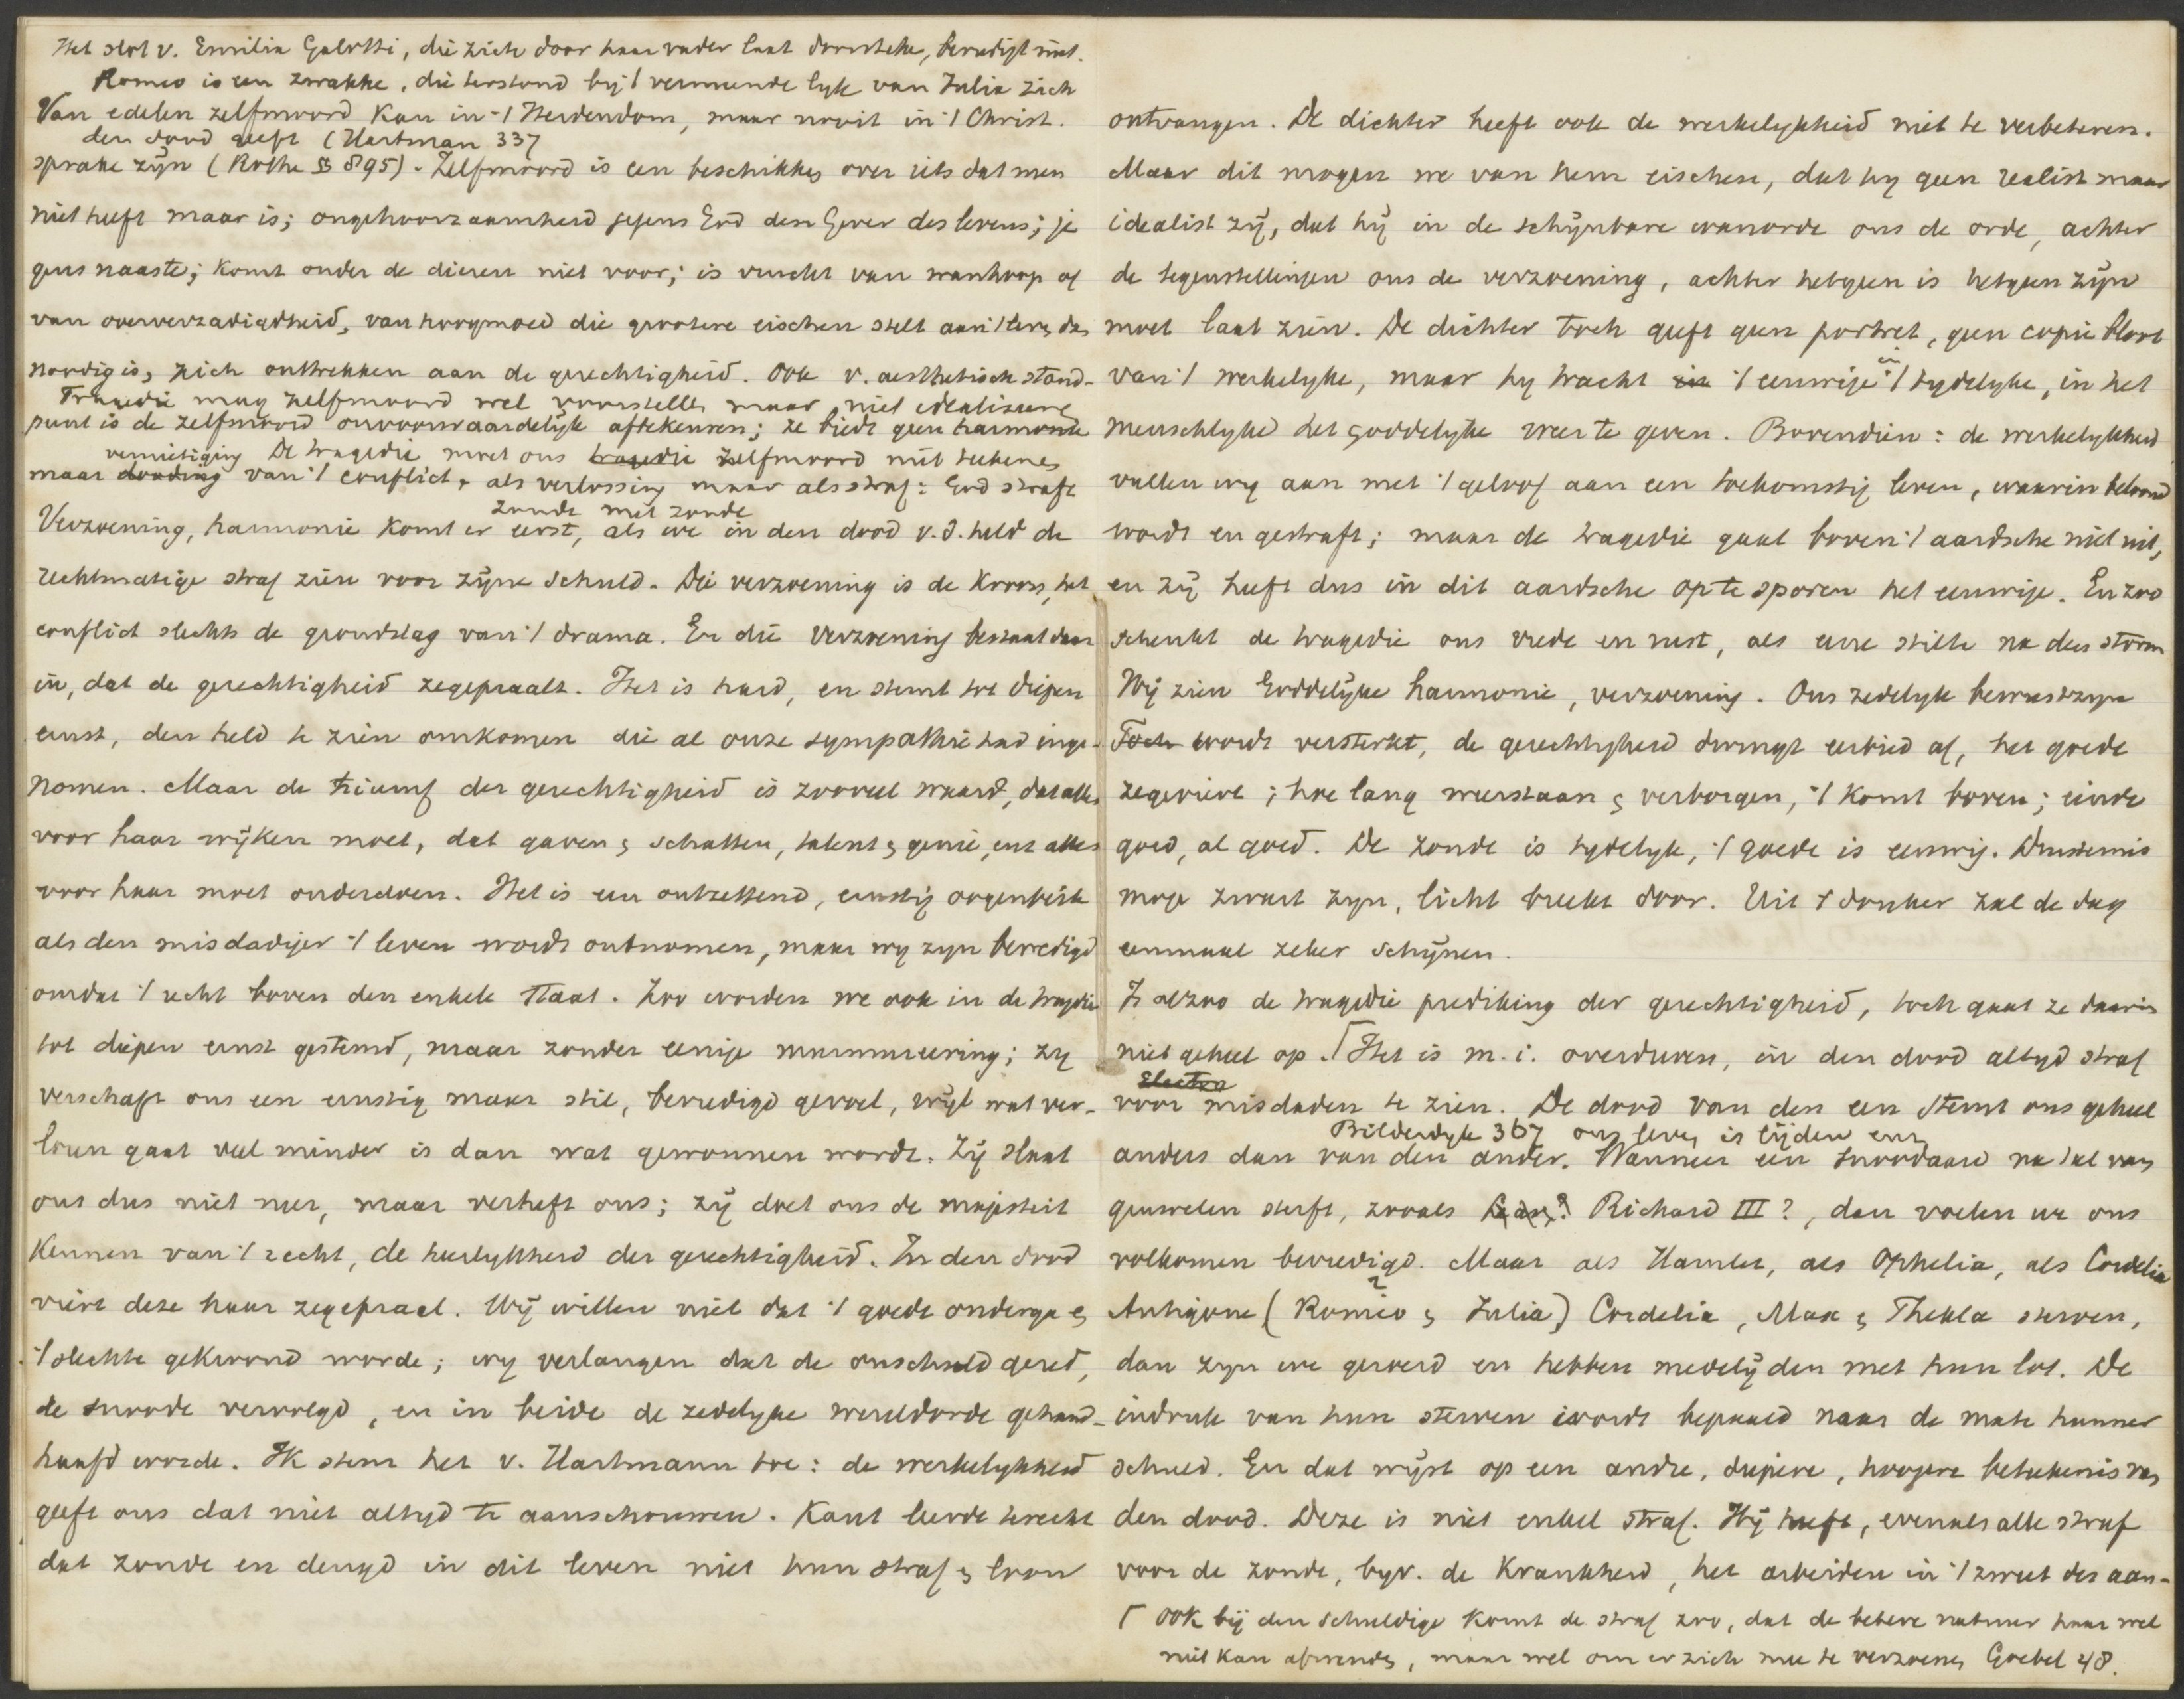 Het slot v. Emilia Galotti, die zich door haar vader laat doorsteken, bevredigt niet.
Romeo is een zwakke, die terstond bij 't vermeende lijk van Julia zich
Van edelen zelfmoord kan in 't Heidendom, maar nooit in 't Christ.
den dood geeft (Hartman 337
sprake zijn (Rothe § 895). Zelfmoord is een beschikken over iets dat men
niet heeft maar is; ongehoorzaamheid jegens God den Gever des levens; je
gens naaste; komt onder de dieren niet voor; is vrucht van wanhoop of
van oververzadigdheid, van hoogmoed die grootere eischen stelt aan 't leven dan
noodig is, zich onttrekken aan de gerechtigheid. Ook v. aesthetisch stand-
Tragedie mag zelfmoord wel voorstellen maar niet idealiseren
punt is de zelfmoord onvoorwaardelijk aftekeuren; ze biedt geen harmonie
vernietiging De tragedie moet ons tragedie zelfmoord niet teekenen
maar dooding van 't conflict, als verlossing maar als straf: God straft
zonde met zonde
Verzoening, harmonie komt er eerst, als we in den dood v. d. held de
rechtmatige straf zien voor zijne schuld. Die verzoening is de kroon, het
conflict slechts de grondslag van 't drama. En die verzoening bestaat daar
in, dat de gerechtigheid zegepraalt. Het is hard, en stemt tot diepen
ernst, den held te zien omkomen die al onze sympathie had inge-
nomen. Maar de triumf der gerechtigheid is zooveel waard, dat alles
voor haar wijken moet, dat gaven en schatten, talent en genie, enz alles
voor haar moet onderdoen. Het is een ontzettend, ernstig oogenblik
als den misdadiger 't leven wordt ontnomen, maar wy zyn bevredigd
omdat 't recht boven den enkele staat. Zoo worden we ook in de tragedie
tot diepen ernst gestemd, maar zonder eenige murmureering; zy
verschaft ons een ernstig maar stil, bevredigd gevoel, wijl wat ver-
loren gaat veel minder is dan wat gewonnen wordt. Zij slaat
ons dus niet neer, maar verheft ons; zij doet ons de majesteit
kennen van 't recht, de heerlykheid der gerechtigheid. In den dood
viert deze haar zegepraal. Wij willen niet dat 't goede onderga en
't slechte gekroond worde; wy verlangen dat de onschuld gered,
de snoode vervolgd, en in beide de zedelyke wereldorde gehand-
haafd worde. Ik stem het v. Hartmann toe: de werkelykheid
geeft ons dat niet altyd te aanschouwen. Kant leerde terecht
dat zonde en deugd in dit leven niet hun straf en loon
ontvangen. De dichter heeft ook de werkelykheid niet te verbeteren.
Maar dit mogen we van hem eischen, dat hy geen realist maar
idealist zij, dat hij in de schijnbare wanorde ons de orde, achter
de tegenstellingen ons de verzoening, achter hetgeen is hetgeen zijn
moet laat zien. De dichter toch geeft geen portret, geen copie bloot
van 't werkelyke, maar hy tracht in 't eeuwige in 't tydelyke, in het
menschlyke het goddelyke weer te geven. Bovendien: de werkelykheid
vullen wy aan met 't geloof aan een toekomstig leven, waarin beloond
wordt en gestraft; maar de tragedie gaat boven 't aardsche niet uit,
en zij heeft dus in dit aardsche op te sporen het eeuwige. En zoo
schenkt de tragedie ons vrede en rust, als eene stilte na den storm
Wij zien Goddelijke harmonie, verzoening. Ons zedelyk bewustzyn
Toch wordt versterkt, de gerechtigheid dwingt eerbied af, het goede
zegeviert; hoe lang weerstaan en verborgen, 't komt boven; einde
goed, al goed. De zonde is tydelyk, 't goede is eeuwig. Duisternis
moge zwart zyn, licht breekt door. Uit 't donker zal de dag
eenmaal zeker schijnen.
Is alzoo de tragedie prediking der gerechtigheid, toch gaat ze daarin
niet geheel op. ⌈ Het is m. i. overdreven, in den dood altyd straf
Electra
voor misdaden te zien. De dood van den een stemt ons geheel
Bilderdyk 367 ons leven is lijden enz
anders dan van den ander. Wanneer een snoodaard na tal van
gruwelen sterft, zooals Richard III?, dan voelen we ons
volkomen bevredigd. Maar als Hamlet, als Ophelia, als Cordelia
Antigone (Romeo en Julia) Cordelia, Max en Thekla sterven,
dan zyn we geroerd en hebben medelijden met hun lot. De
indruk van hun sterven wordt bepaald naar de mate hunner
schuld. En dat wijst op een andre, diepere, hoogere beteekenis van
den dood. Deze is niet enkel straf. Hij heeft, evenals alle straf
voor de zonde, byv. de krankheid, het arbeiden in 't zweet des aan-
⌈ ook bij den schuldige komt de straf zoo, dat de betere natuur haar wel
niet kan afwenden, maar wel om er zich mee te verzoenen Goebel 48.